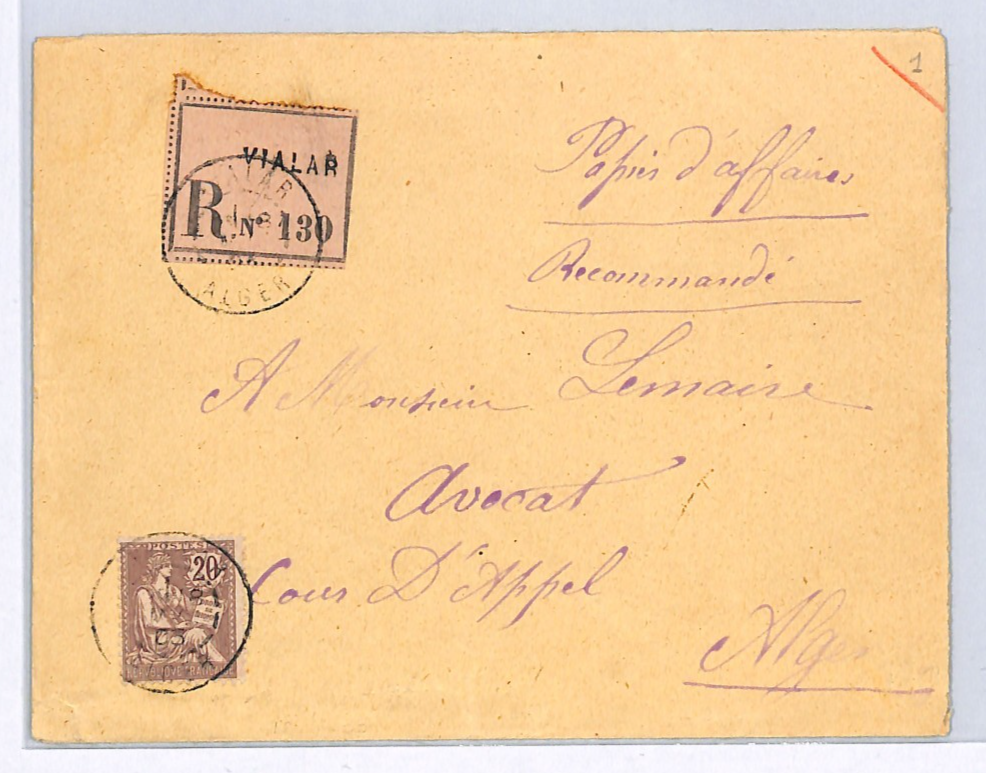 1
VIALAR
R No 130
ALGER
Papiers d'affaires
Recommandé
A Monsieur Lemaire
Avocat
Cour D'Appel
Alger
POSTES
20